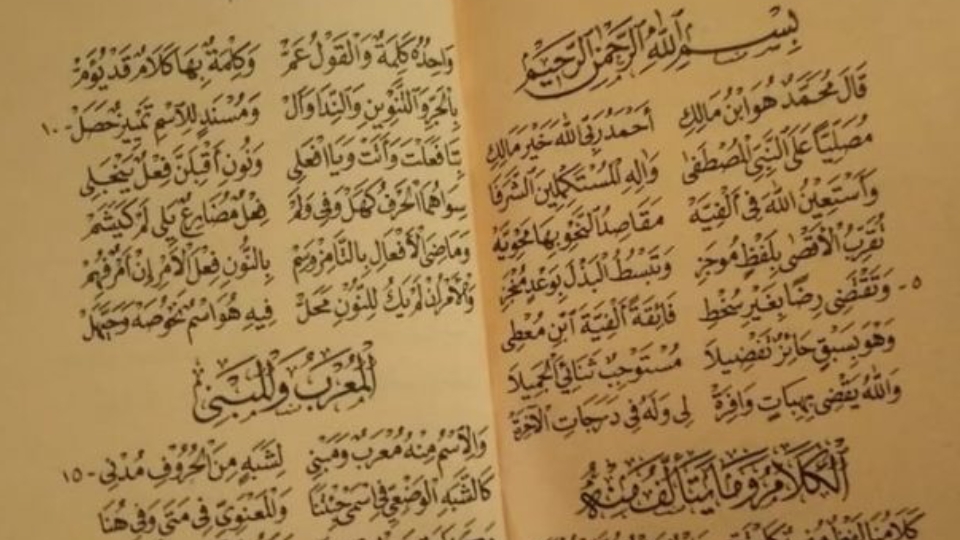 بِسْمِ اللهِ الرَّحْمٰنِ الرَّحِيْمِ
قَالَ مُحَمَّدٌ هُوَ ابْنُ مَالِكِ أَحْمَدُ رَبِّي اللهَ خَيْرَ مَالِكِ
مُصَلِّيًا عَلَى النَّبِيِّ الْمُصْطَفَى وَآلِهِ الْمُسْتَكْمِلِينَ الشَّرَفَا
وَأَسْتَعِينُ اللهَ فِي أَلْفِيَّهْ مَقَاصِدُ النَّحْوِ بِهَا مَحْوِيَّهْ
تُقَرِّبُ الْأَقْصَى بِلَفْظٍ مُوجَزِ وَتَبْسُطُ الْبَذْلَ بِوَعْدٍ مُنْجَزِ
٥- وَتَقْتَضِي رِضًا بِغَيْرِ سُخْطِ فَائِقَةً أَلْفِيَّةَ ابْنِ مُعْطِي
وَهْوَ بِسَبْقٍ حَائِزٌ تَفْضِيلَا مُسْتَوْجِبٌ ثَنَائِيَ الْجَمِيلَا
وَاللهُ يَقْضِي بِهِبَاتٍ وَافِرَةْ لِي وَلَهُ فِي دَرَجَاتِ الْآخِرَةْ
الْكَلَامُ وَمَا يَتَأَلَّفُ مِنْهُ
كَلَامُنَا لَفْظٌ مُفِيدٌ
وَاحِدُهُ كَلِمَةٌ وَالْقَوْلُ عَمْ وَكِلْمَةٌ بِهَا كَلَامٌ قَدْ يُؤَمْ
بِالْجَرِّ وَالتَّنْوِينِ وَالنِّدَا وَأَلْ وَمُسْنَدٍ لِلِاسْمِ تَمْيِيزٌ حَصَلْ -١٠
بِتَا فَعَلْتَ وَأَتَتْ وَيَا افْعَلِي وَنُونِ أَقْبِلَنَّ فِعْلٌ يَنْجَلِي
سِوَاهُمَا الْحَرْفُ كَهَلْ وَفِي وَلَمْ فِعْلٌ مُضَارِعٌ يَلِي لَمْ كَيَشَمْ
وَمَاضِيَ الْأَفْعَالِ بِالتَّا مِزْ وَسِمْ بِالنُّونِ فِعْلَ الْأَمْرِ إِنْ أَمْرٌ فُهِمْ
وَالْأَمْرُ إِنْ لَمْ يَكُ لِلنُّونِ مَحَلْ فِيهِ هُوَ اسْمٌ نَحْوُ صَهْ وَحَيَّهَلْ
الْمُعْرَبُ وَالْمَبْنِي
وَالِاسْمُ مِنْهُ مُعْرَبٌ وَمَبْنِي لِشَبَهٍ مِنَ الْحُرُوفِ مُدْنِي -١٥
كَالشَّبَهِ الْوَضْعِيِّ فِي اسْمَيْ جِئْتَنَا وَالْمَعْنَوِيِّ فِي مَتَى وَفِي هُنَا